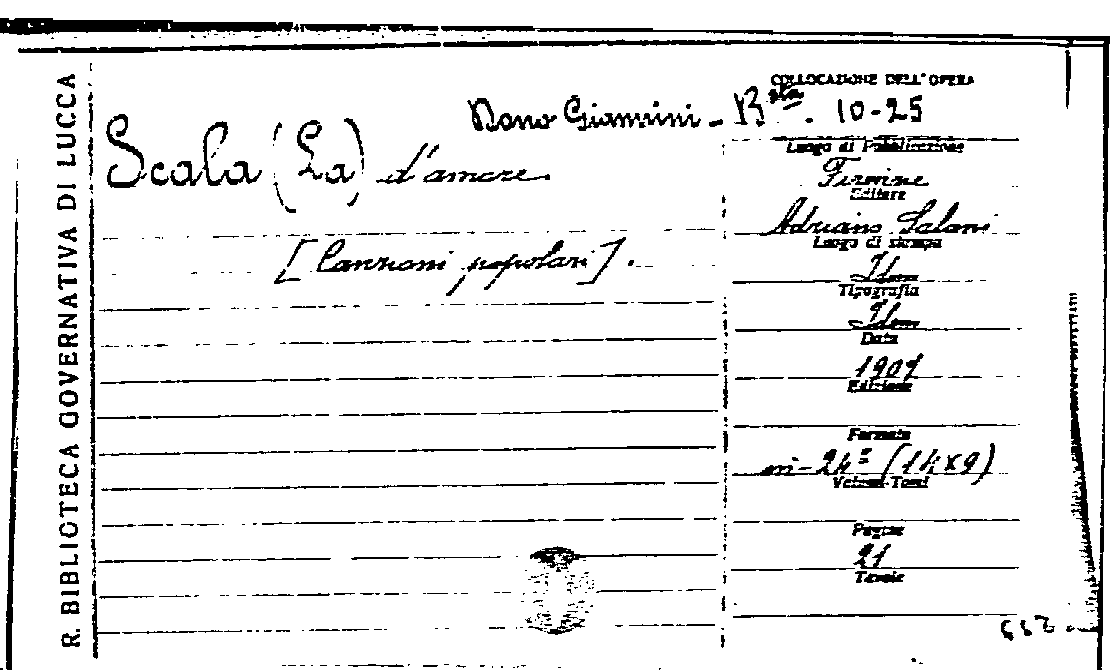 R. BIBLIOTECA GOVERNATIVA DI LUCCA
COLLOCAZIONE DELL' OPERA
Dono Giannini - B.sta. 10-25
Scala (La) d'amore.
[Canzoni popolari].
Luogo di Pubblicazione
Firenze
Editore
Adriano Salani
Luogo di stampa
Idem
Tipografia
Idem
Data
1907
Edizione
Formato
in-24° (14x9)
Volumi-Tomi
Pagine
21
Tavole